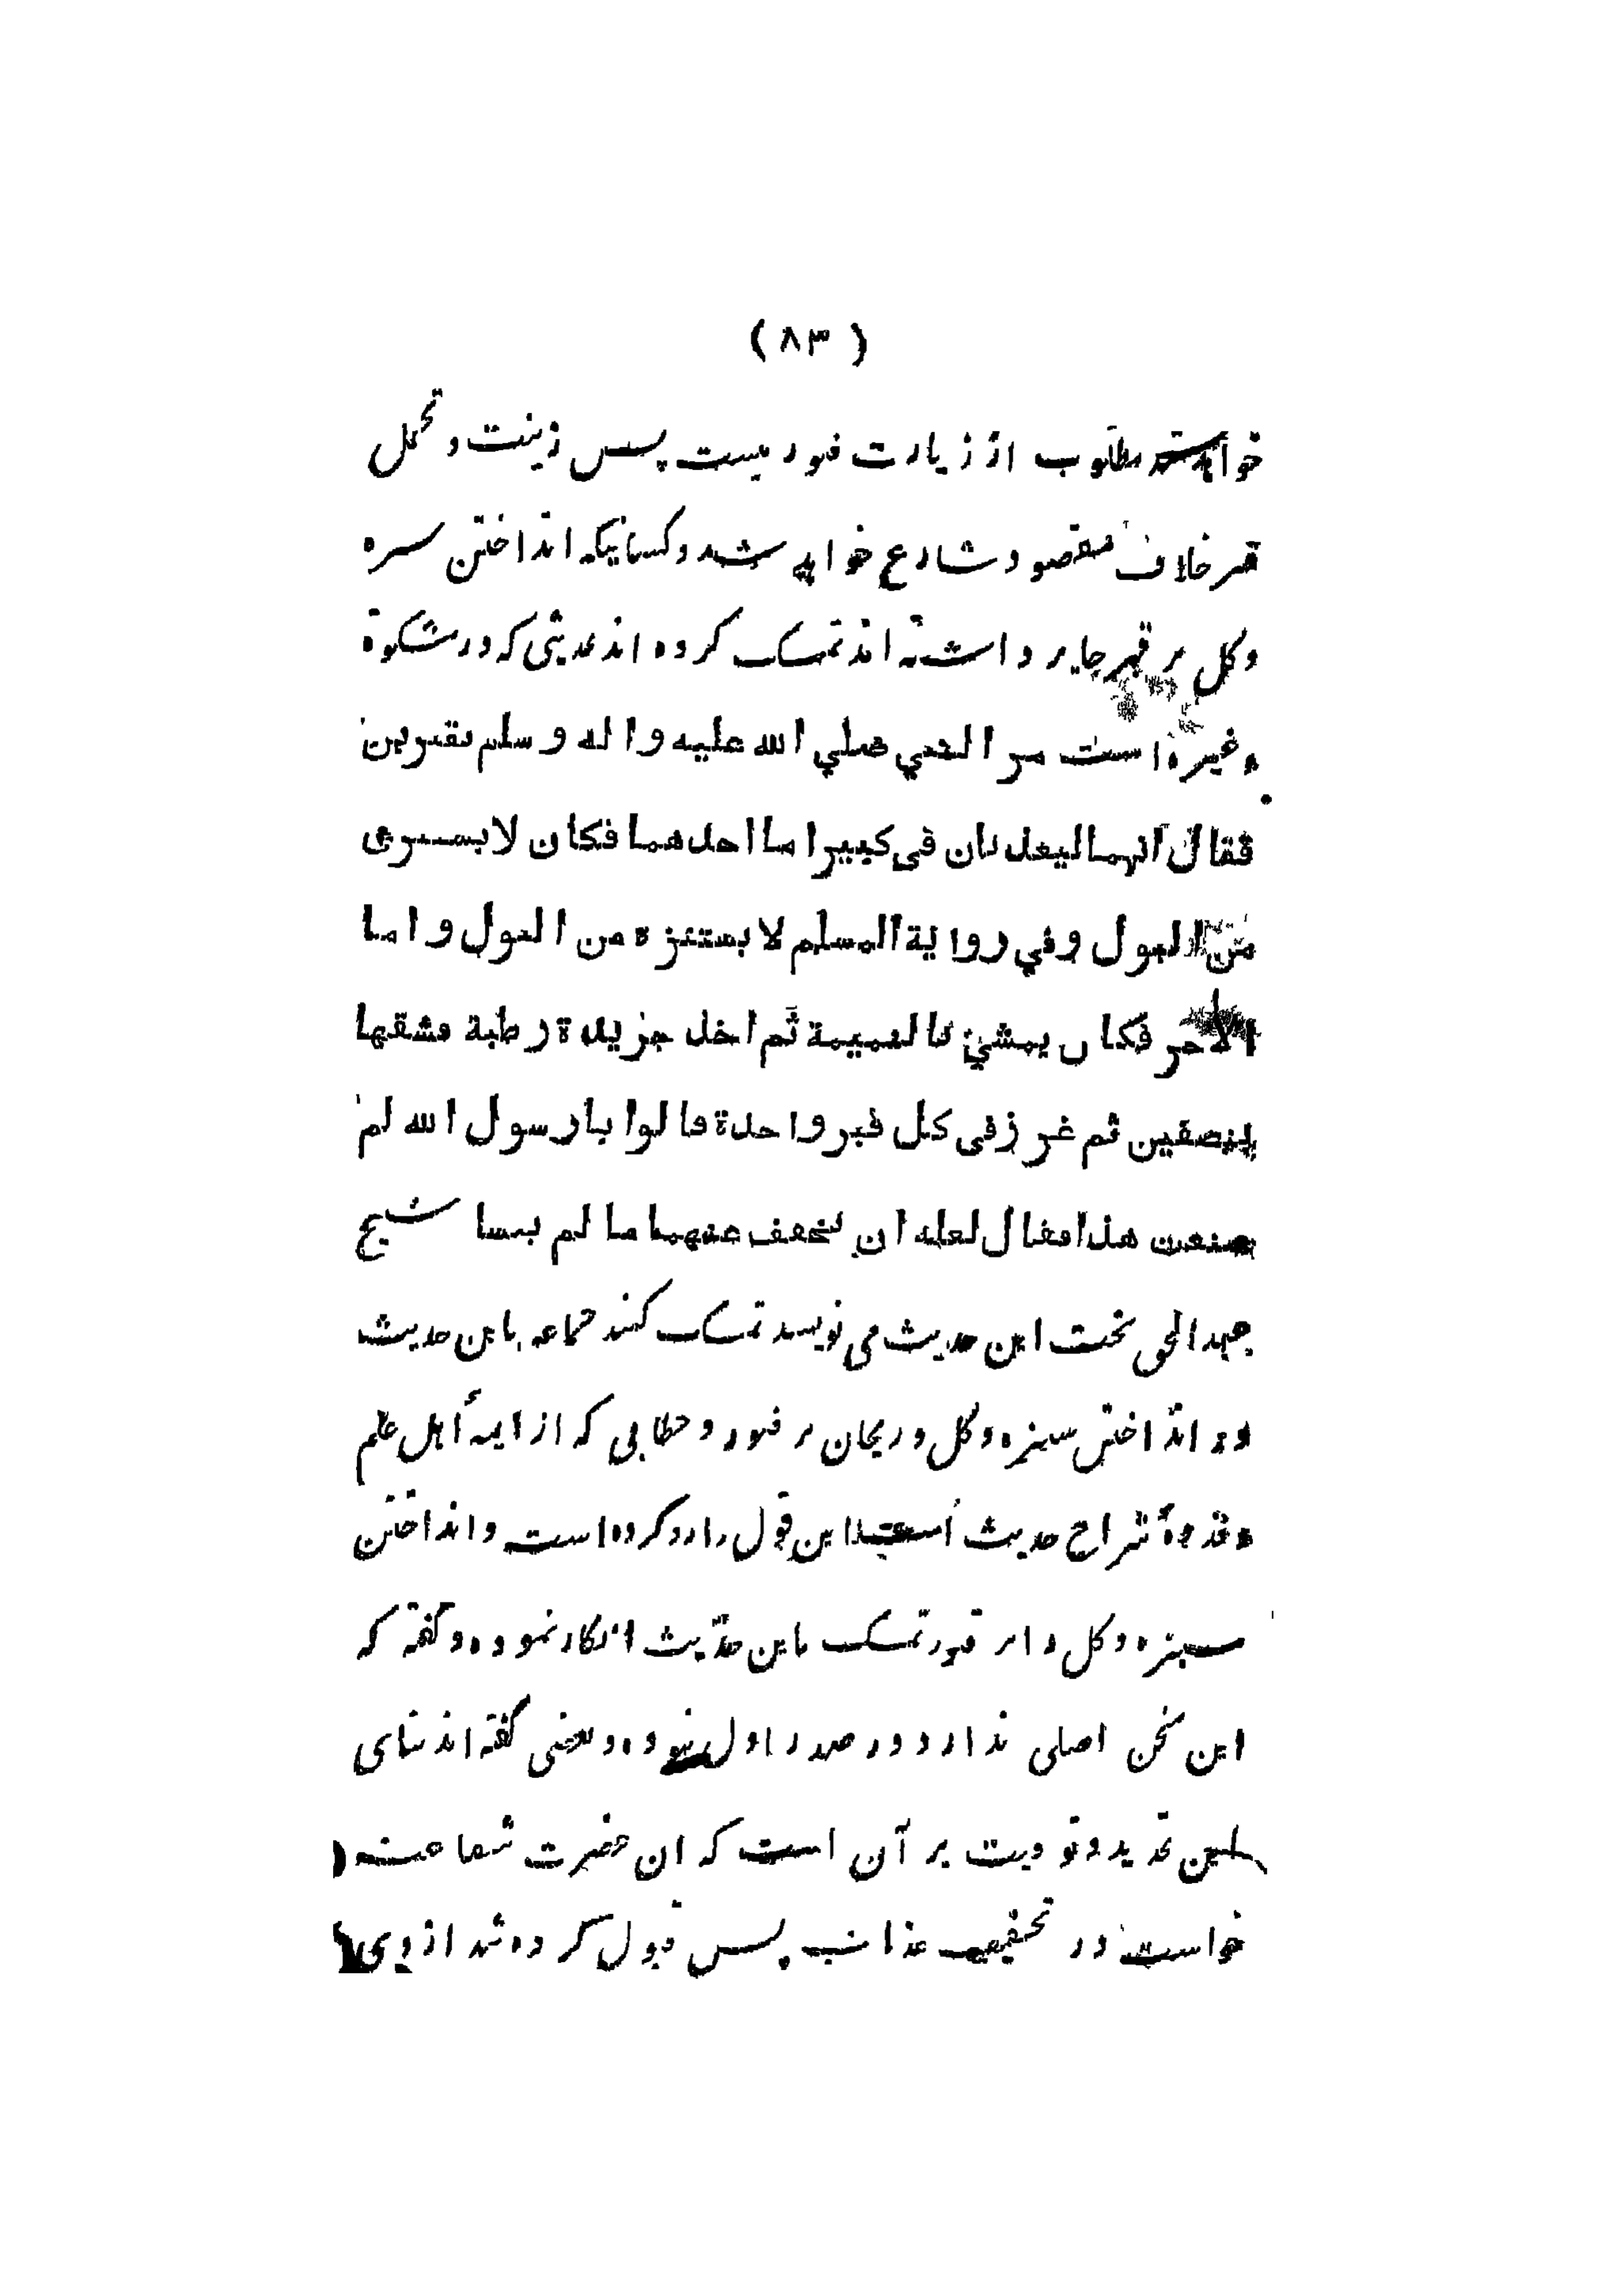 ( ۸۳ )
خواهد شد مطلوب از زیارت قبور نیست پس زینت و تجمل
قبر خلاف مقصود شارع خواهد شد و کسانیکه انداختن سبزه
وگل بر قبر جایز داشته اند تمسک کرده اند بحدیثی که در مشکوة
وغیره است مر النبي صلي الله عليه واله وسلم بقبرين
فقال انهما ليعذبان في كبير اما احدهما فكان لا يستبري
من البول وفي رواية المسلم لا يستنزه من البول واما
الاخر فكان يمشي بالنميمة ثم اخذ جريدة رطبة فشقها
بنصفين ثم غرز في كل قبر واحدة قالوا يا رسول الله لم
صنعت هذا فقال لعله ان يخفف عنهما ما لم ييبسا شیخ
عبدالحق تحت این حدیث می نویسد تمسک کنند جماعه باین حدیث
در انداختن سبزه وگل و ریحان بر قبور و خطابی که از ایمهٔ اهل علم
وقدوهٔ شراح حدیث است این قول را رد کرده است و انداختن
سبزه وگل را بر قبور تمسک باین حدیث انکار نموده و گفته که
این سخن اصلی ندارد و در صدر اول نبوده و بعضی گفته اند بنای
این تحدید و توقیت بر آن است که ان حضرت شفاعت
خواست در تخفیف عذاب پس قبول کرده شد از وی